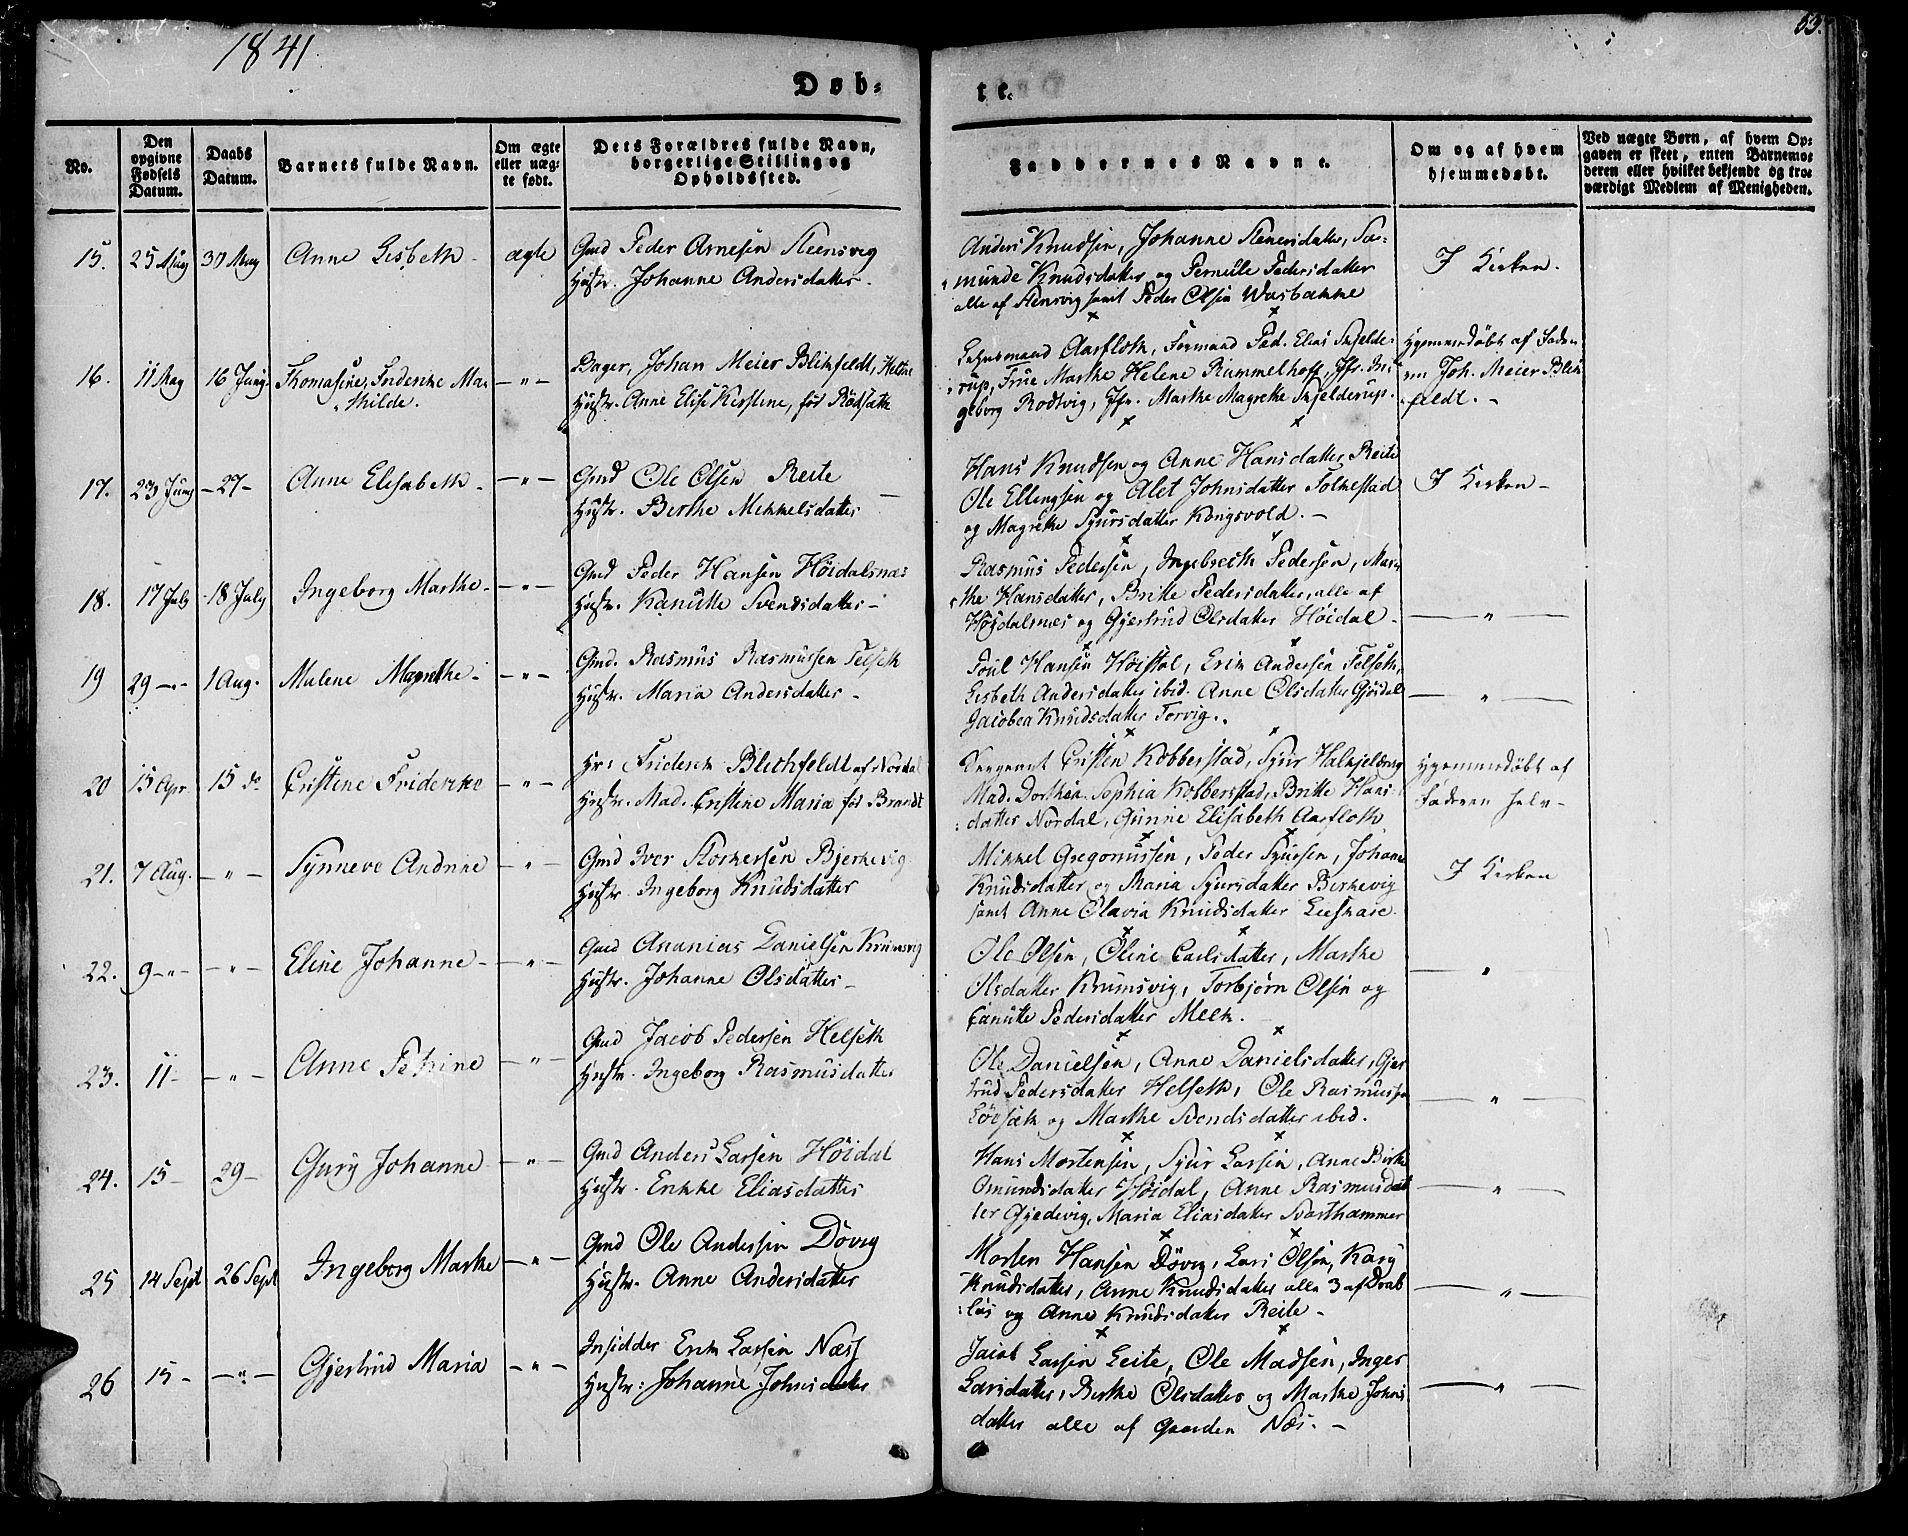 1841
Døb=
te.
No.
Den opgivne Fødsels Datum.
Daabs Datum.
Barnets fulde Navn.
Om ægte eller uægte født.
Dets Forældres fulde Navn, borgerlige Stilling og Opholdssted.
Faddernes Navne.
Om og af hvem hjemmedøbt.
Ved uægte Børn, af hvem Op=
gaven er skeet, enten Barnemo=
deren eller hvilket bekjendt og tro=
værdigt Medlem af Menigheden.
15. 25 May 30 May Anne Lisbeth ægte Gmd Peder Arnesen Steensvig
Hustr. Johanne Andersdatter
Anders Knudsen, Johanne Stenersdatter, Sø=
munde Knudsdatter og Pernille Pedersdatter
alle af Stensvig samt Peder Olsen Wasbakke
I Kirken.
16. 11 May 16 Juny Thomasine, Friderike Ma=
thilde. —"—
Johan Meier Blikfeldt,
Hustr. Anne Elise Kirstine, født Rødsæth
Aarfloth, Formand Pad. Elias Skjelde=
rup, Frue Marthe Helene Rummelhoff, Jfr. In=
geborg Rodtvig, Jfr. Marthe Magrethe Skjelderup.
Hjemmedøbt af Fade=
ren Joh. Meier Blik=
feldt. -
17. 23 Juny —27— Anne Elisabeth —"— Gmd Ole Olsen Reite
Hustr. Birthe Mikkelsdatter
Hans Knudsen og Anne Hansdatter Reite
Ole Ellingsen og Alet Johnsdatter Folkestad
og Magrethe Sjursdatter Kongsvold. —
I Kirken —
18. 17 July 18 July Ingeborg Marthe —"— Gmd Peder Hansen Höidalsnæs
Hustr. Kanutte Svendsdatter —
Rasmus Pedersen, Ingebreth Pedersen, Mar=
the Hansdatter, Britte Pedersdatter, alle af
Höjdalsnæs og Gjertrud Olsdatter Höidal
— " —
19 29 —"— 1 Aug. Malene Magrethe —"— Gmd. Rasmus Rasmussen Felseth
Hustr. Maria Andersdatter —
Poul Hansen Höistøl, Erik Andersen Felseth,
Lisbeth Andersdatter ibid. Anne Olsdatter Gjöidal
Jacobea Knudsdatter Torvig.
— " —
20 15 Apr 15 do Cristine Friderike —"— Hr: Friderik Blichfeldt af Nordal
Hustr. Mad. Cristine Maria föd Brandt
Sergeant Cristen Kobberstad, Sjur Halkjelsvig
Mad. Dorthea Sophia Kobberstad, Britte Hans=
datter Nordal, Gunne Elisabeth Aarfloth
Hjemmedöbt af
Faderen selv —
21. 7 Aug. —"— Synneve Andrine —"— Gmd Iver Storkersen Bjerkevig
Hustr. Ingeborg Knudsdatter
Mikkel Gregoriussen, Peder Sjursen, Johanne
Knudsdatter og Maria Sjursdatter Birkevig
samt Anne Olavia Knudsdatter Leeskare
I Kirken
22. 9 —"— —"— Eline Johanne —"— Gmd Ananias Danielsen Krumsvig
Hustr. Johanne Olsdatter —
Ole Olsen, Oline Carlsdatter, Marthe
Olsdatter Krumsvig, Torbjørn Olsen og
Canutte Pedersdatter Melk.
— " —
23. 11 — —"— Anne Petrine —"— Gmd Jacob Pedersen Helseth
Hustr. Ingeborg Rasmusdatter
Ole Danielsen, Anne Danielsdatter, Gjer
trud Pedersdatter Helseth, Ole Rasmussen
Löesæth og Marthe Svendsdatter ibid.
— " —
24. 15 — 29 — Gury Johanne —"— Gmd Anders Larsen Höidal
Hustr. Enkke Eliasdatter
Hans Mortensen, Sjur Larsen, Anne Birthe
Omundsdatter Höidal, Anne Rasmusdat
ter Gjedevig, Maria Eliasdatter Svarthammer
— " —
25 14 Sept 26 Sept Ingeborg Marthe —"— Gmd Ole Andersen Dövig
Hustr. Anne Andersdatter
Morten Hansen Dövig, Lars Olsen, Kary
Knudsdatter, Anne Knudsdatter alle 3 af Drab
lös og Anne Knudsdatter Reite —
— " —
26 15 — —"— Gjertrud Maria —"— Insidder Erik Larsen Næss
Hustr: Johanne Johnsdatter
Jacob Larsen Leite, Ole Madsen, Inger
Larsdatter, Birthe Olsdatter og Marthe Johns
datter alle af Gaarden Næs. —
— " —